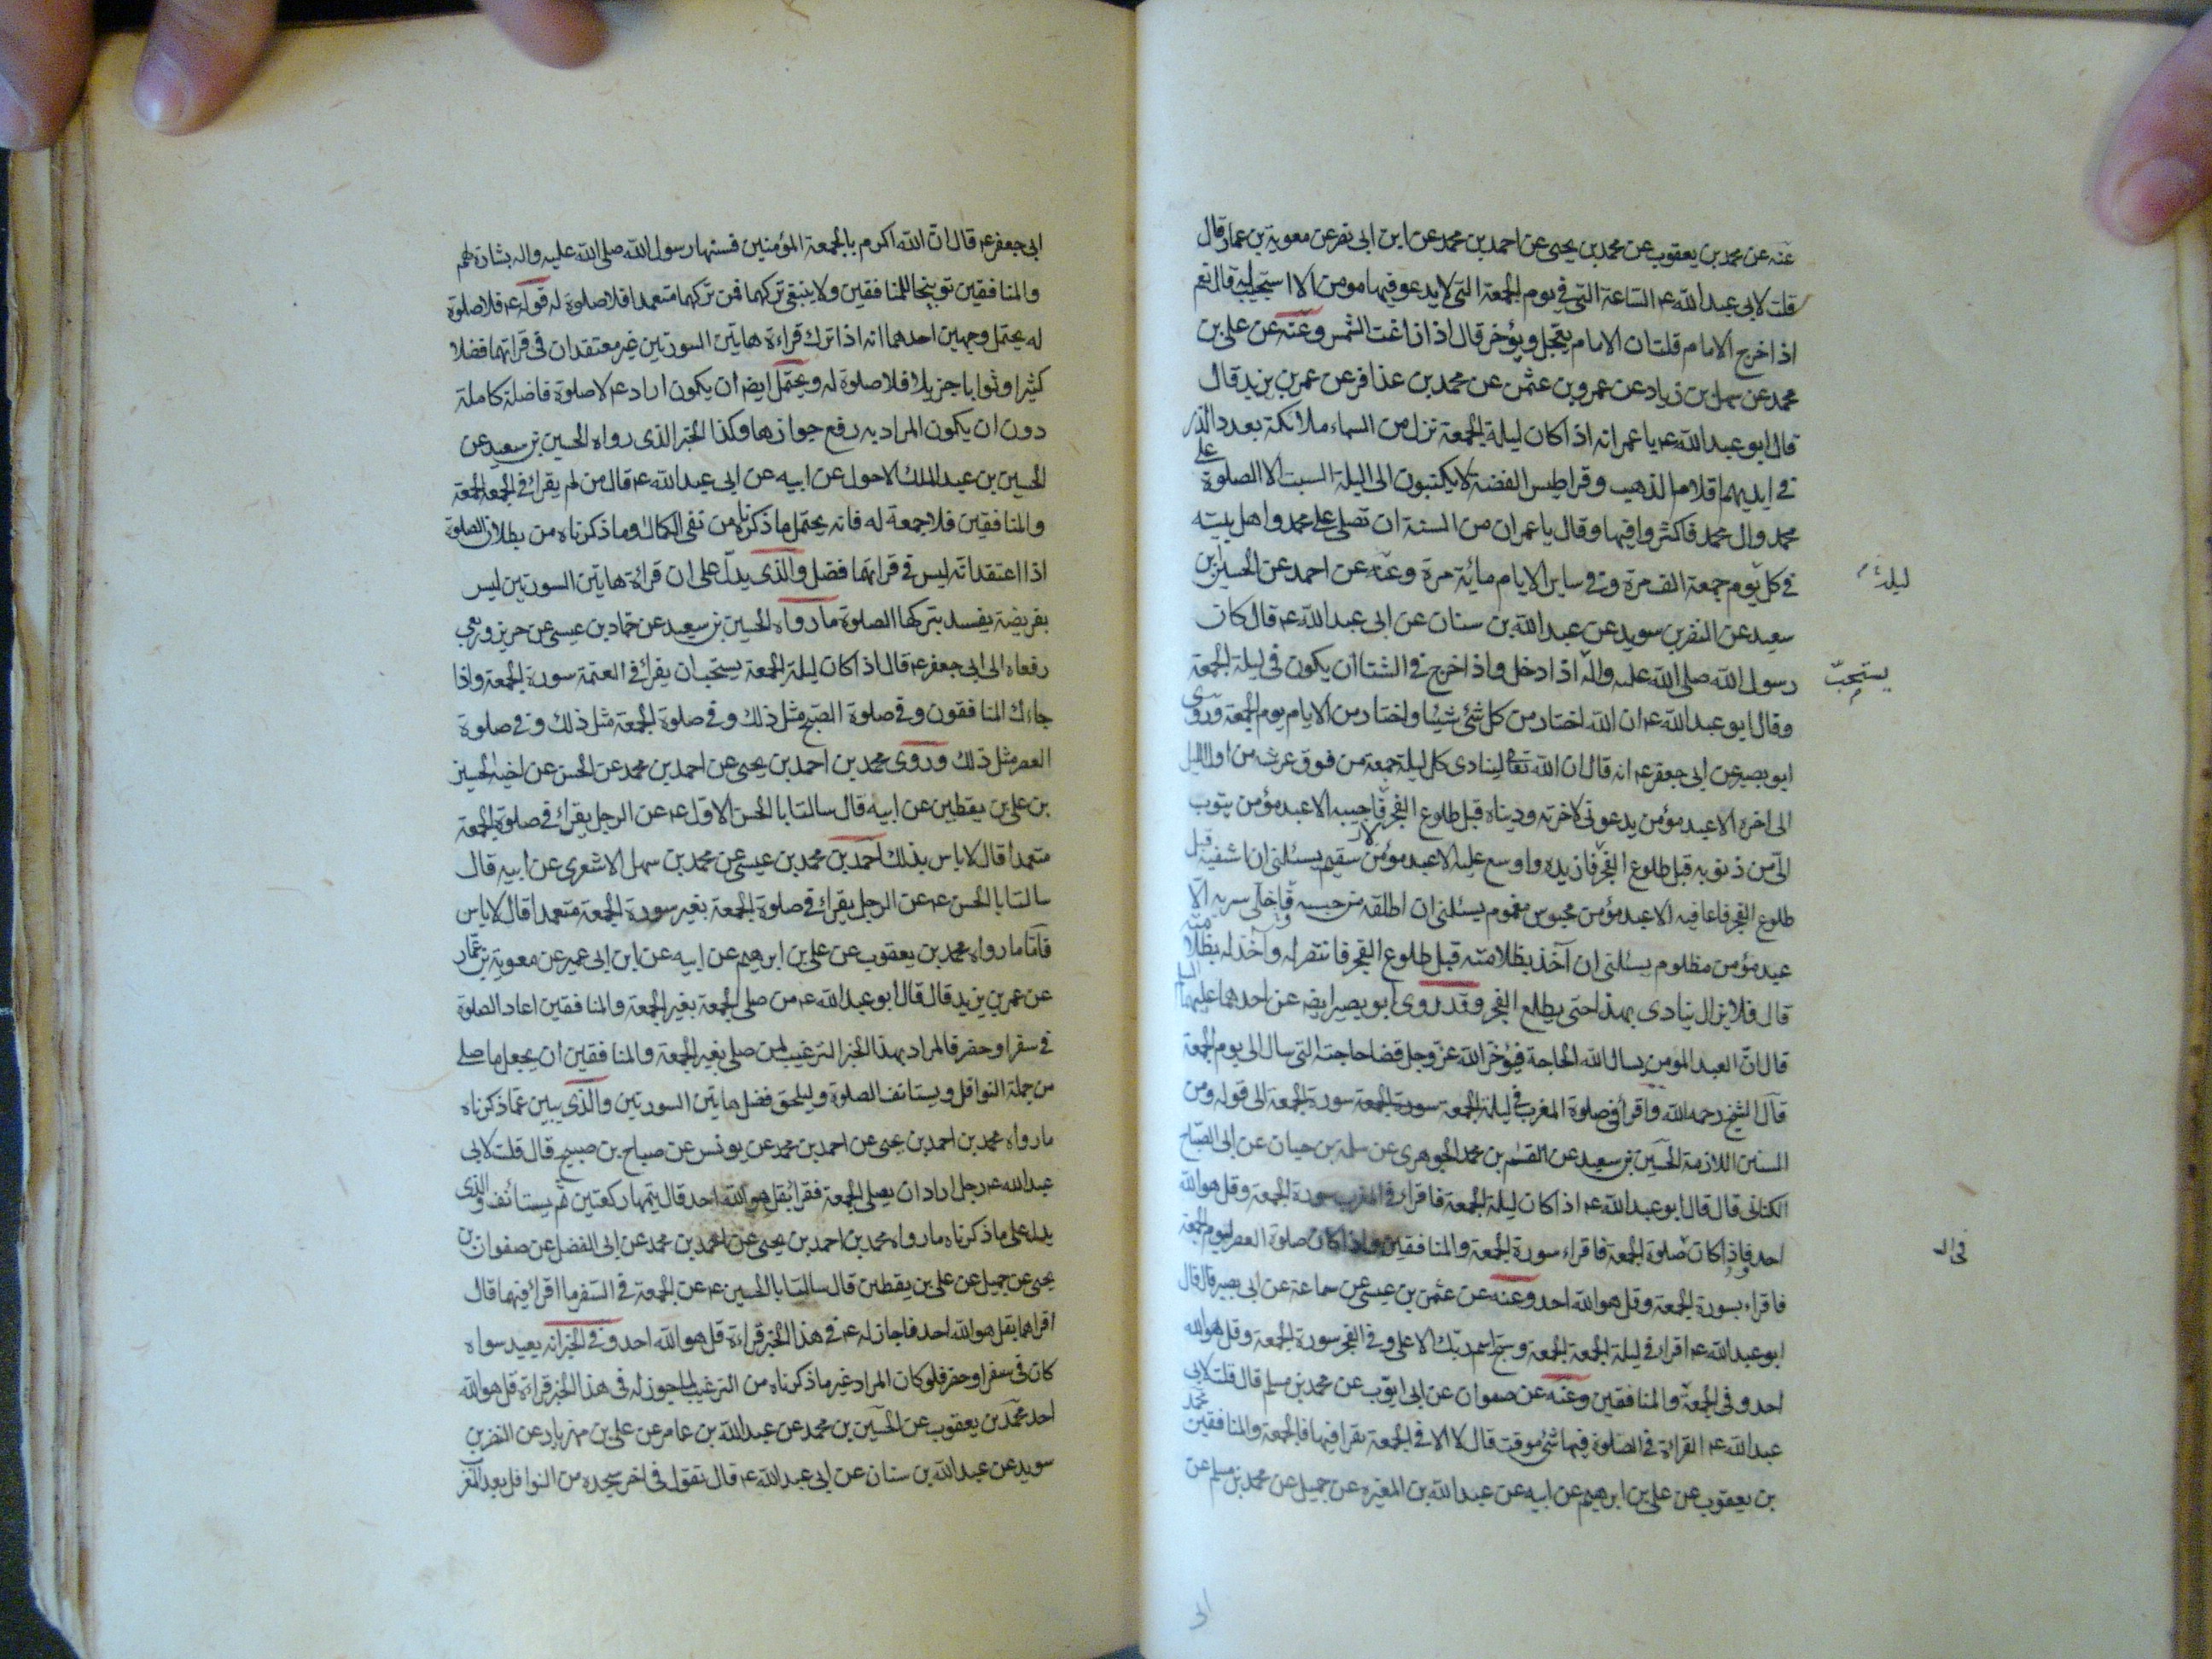 عنه عن محمد بن يعقوب عن محمد بن يحيى عن احمد بن محمد عن ابن ابى نصر عن معوية بن عمار قال
قلت لابى عبد الله ع الساعة التى فى يوم الجمعة التى لا يدعو فيها مومن الا استجيب له قال نعم
اذا خرج الامام قلت ان الامام يعجل ويؤخر قال اذا زاغت الشمس وعنه عن على بن
محمد عن سهل بن زياد عن عمرو بن عثمن عن محمد بن عذافر عن عمر بن يزيد قال
قال ابو عبد الله ع يا عمر انه اذا كان ليلة الجمعة نزل من السماء ملائكة بعدد الذر
فى ايديهم اقلام الذهب وقراطيس الفضة لا يكتبون الى ليلة السبت الا الصلوة على
محمد وال محمد فاكثروا فيها وقال يا عمر ان من السنة ان تصلى على محمد واهل بيته
فى كل يوم جمعة الف مرة وفى ساير الايام مائة مرة وعنه عن احمد عن الحسين بن
سعيد عن النضر بن سويد عن عبد الله بن سنان عن ابى عبد الله ع قال كان
رسول الله صلى الله عليه واله اذا دخل واذا خرج فى الشتا ان يكون فى ليلة الجمعة
يستحبّ
وقال ابو عبد الله ع ان الله اختار من كل شئ شيئا واختار من الايام يوم الجمعة وروى
ابو بصير عن ابى جعفر ع انه قال ان الله تعالى لينادى كل ليلة جمعة من فوق عرشه من اول الليل
الى اخره الا عبد مؤمن يدعونى لاخرته ودنياه قبل طلوع الفجر فاجيبه الا عبد مؤمن يتوب
الىّ من ذنوبه قبل طلوع الفجر فازيده واوسع عليه الا عبد مؤمن سقيم يسئلنى ان اشفيه قبل
طلوع الفجر فاعافيه الا عبد مؤمن محبوس مغموم يسئلنى ان اطلقه من حبسه فاخلى سربه الا
عبد مؤمن مظلوم يسئلنى ان آخذ بظلامته قبل طلوع الفجر فانتصر له وآخذ له بظلامته
قال فلا يزال ينادى بهذا حتى يطلع الفجر وقد روى ابو بصير ايضا عن احدهما عليهما السلم
قال انّ العبد المومن يسال الله الحاجة فيؤخّر الله عزّ وجل قضا حاجته التى سال الى يوم الجمعة
قال الشيخ رحمه الله واقرأ فى صلوة المغرب فى ليلة الجمعة سورة الجمعة سورة الجمعة الى قوله ومن
السنن اللازمة الحسين بن سعيد عن القسم بن محمد الجوهرى عن سلمة بن حيان عن ابى الصباح
الكنانى قال قال ابو عبد الله ع اذا كان ليلة الجمعة فاقراء فى المغرب سورة الجمعة وقل هو الله
احد فاذا كان صلوة الجمعة فاقراء سورة الجمعة والمنافقين واذا كان صلوة العصر ليوم الجمعة
فاقراء بسورة الجمعة وقل هو الله احد وعنه عن عثمن بن عيسى عن سماعة عن ابى بصير قال قال
ابو عبد الله ع اقراء فى ليلة الجمعة الجمعة وسبح اسم ربك الاعلى وفى الفجر سورة الجمعة وقل هو الله
احد وفى الجمعة والمنافقين وعنه عن صفوان عن ابى ايوب عن محمد بن مسلم قال قلت لابى
عبد الله ع القراءة فى الصلوة فيها شئ موقت قال لا الا فى الجمعة تقرا فيها فالجمعة والمنافقين محمد
بن يعقوب عن على بن ابرهيم عن ابيه عن عبد الله بن المغيره عن جميل عن محمد بن مسلم عن
ابى جعفر ع قال انّ الله اكرم بالجمعة المؤمنين فسنها رسول الله صلى الله عليه واله بشارة لهم
والمنافقين توبيخا للمنافقين ولا ينبغى تركهما فمن تركهما متعمدا فلا صلوة له قوله ع فلا صلوة
له يحتمل وجهين احدهما انه اذا ترك قراءة هاتين السورتين غير معتقد ان فى قراتهما فضلا
كثيرا وثوابا جزيلا فلا صلوة له ويحتمل ايضا ان يكون اراد ع لا صلوة فاضلة كاملة
دون ان يكون المراد به رفع جوازها وكذا الخبر الذى رواه الحسين بن سعيد عن
الحسين بن عبد الملك الاحول عن ابيه عن ابى عبد الله ع قال من لم يقرا فى الجمعة الجمعة
والمنافقين فلا جمعة له فانه يحتمل ما ذكرناه من نفى الكمال وما ذكرناه من بطلان الصلوة
اذا اعتقد انه ليس فى قراتهما فضل والذى يدلّ على ان قراءة هاتين السورتين ليس
بفريضة يفسد بتركها الصلوة ما رواه الحسين بن سعيد عن حماد بن عيسى عن حريز وربعى
رفعاه الى ابى جعفر ع قال اذا كان ليلة الجمعة يستحب ان يقرا فى العتمة سورة الجمعة واذا
جاءك المنافقون وفى صلوة الصبح مثل ذلك وفى صلوة الجمعة مثل ذلك وفى صلوة
العصر مثل ذلك وروى محمد بن احمد بن يحيى عن احمد بن محمد عن الحسن عن اخيه الحسين
بن على بن يقطين عن ابيه قال سالت ابا الحسن الاول ع عن الرجل يقرا فى صلوة الجمعة
متعمدا قال لا باس بذلك احمد بن محمد بن عيسى عن محمد بن سهل الاشعرى عن ابيه قال
سالت ابا الحسن ع عن الرجل يقرا فى صلوة الجمعة بغير سورة الجمعة متعمدا قال لا باس
فاما ما رواه محمد بن يعقوب عن على بن ابرهيم عن ابيه عن ابن ابى عمير عن معوية بن عمّار
عن عمر بن يزيد قال قال ابو عبد الله ع من صلى الجمعة بغير الجمعة والمنافقين اعاد الصلوة
فى سفر او حضر فالمراد بهذا الخبر الترغيب لمن صلى بغير الجمعة والمنافقين ان يجعل ما صلى
من جملة النوافل ويستانف الصلوة وليلحق فضل هاتين السورتين والذى يبين عمّا ذكرناه
ما رواه محمد بن احمد بن يحيى عن احمد بن محمد عن يونس عن صباح بن صبيح قال قلت لابى
عبد الله ع رجل اراد ان يصلى الجمعة فقرا بقل هو الله احد قال يتمها ركعتين ثم يستانف والذى
يدل على ما ذكرناه ما رواه محمد بن احمد بن يحيى عن احمد بن محمد عن ابى الفضل عن صفوان بن
يحيى عن جميل عن على بن يقطين قال سالت ابا الحسين ع عن الجمعة فى السفر ما اقرا فيهما قال
اقراهما بقل هو الله احد فاجاز له ع فى هذا الخبر قراءة قل هو الله احد وفى الخبر انه يعيد سواء
كان فى سفر او حضر فلو كان المراد غير ما ذكرناه من الترغيب لما جوز له فى هذا الخبر قراءة قل هو الله
احد محمد بن يعقوب عن الحسين بن محمد عن عبد الله بن عامر عن على بن مهزيار عن النضر بن
سويد عن عبد الله بن سنان عن ابى عبد الله ع قال تقول فى اخر سجده من النوافل بعد المغرب